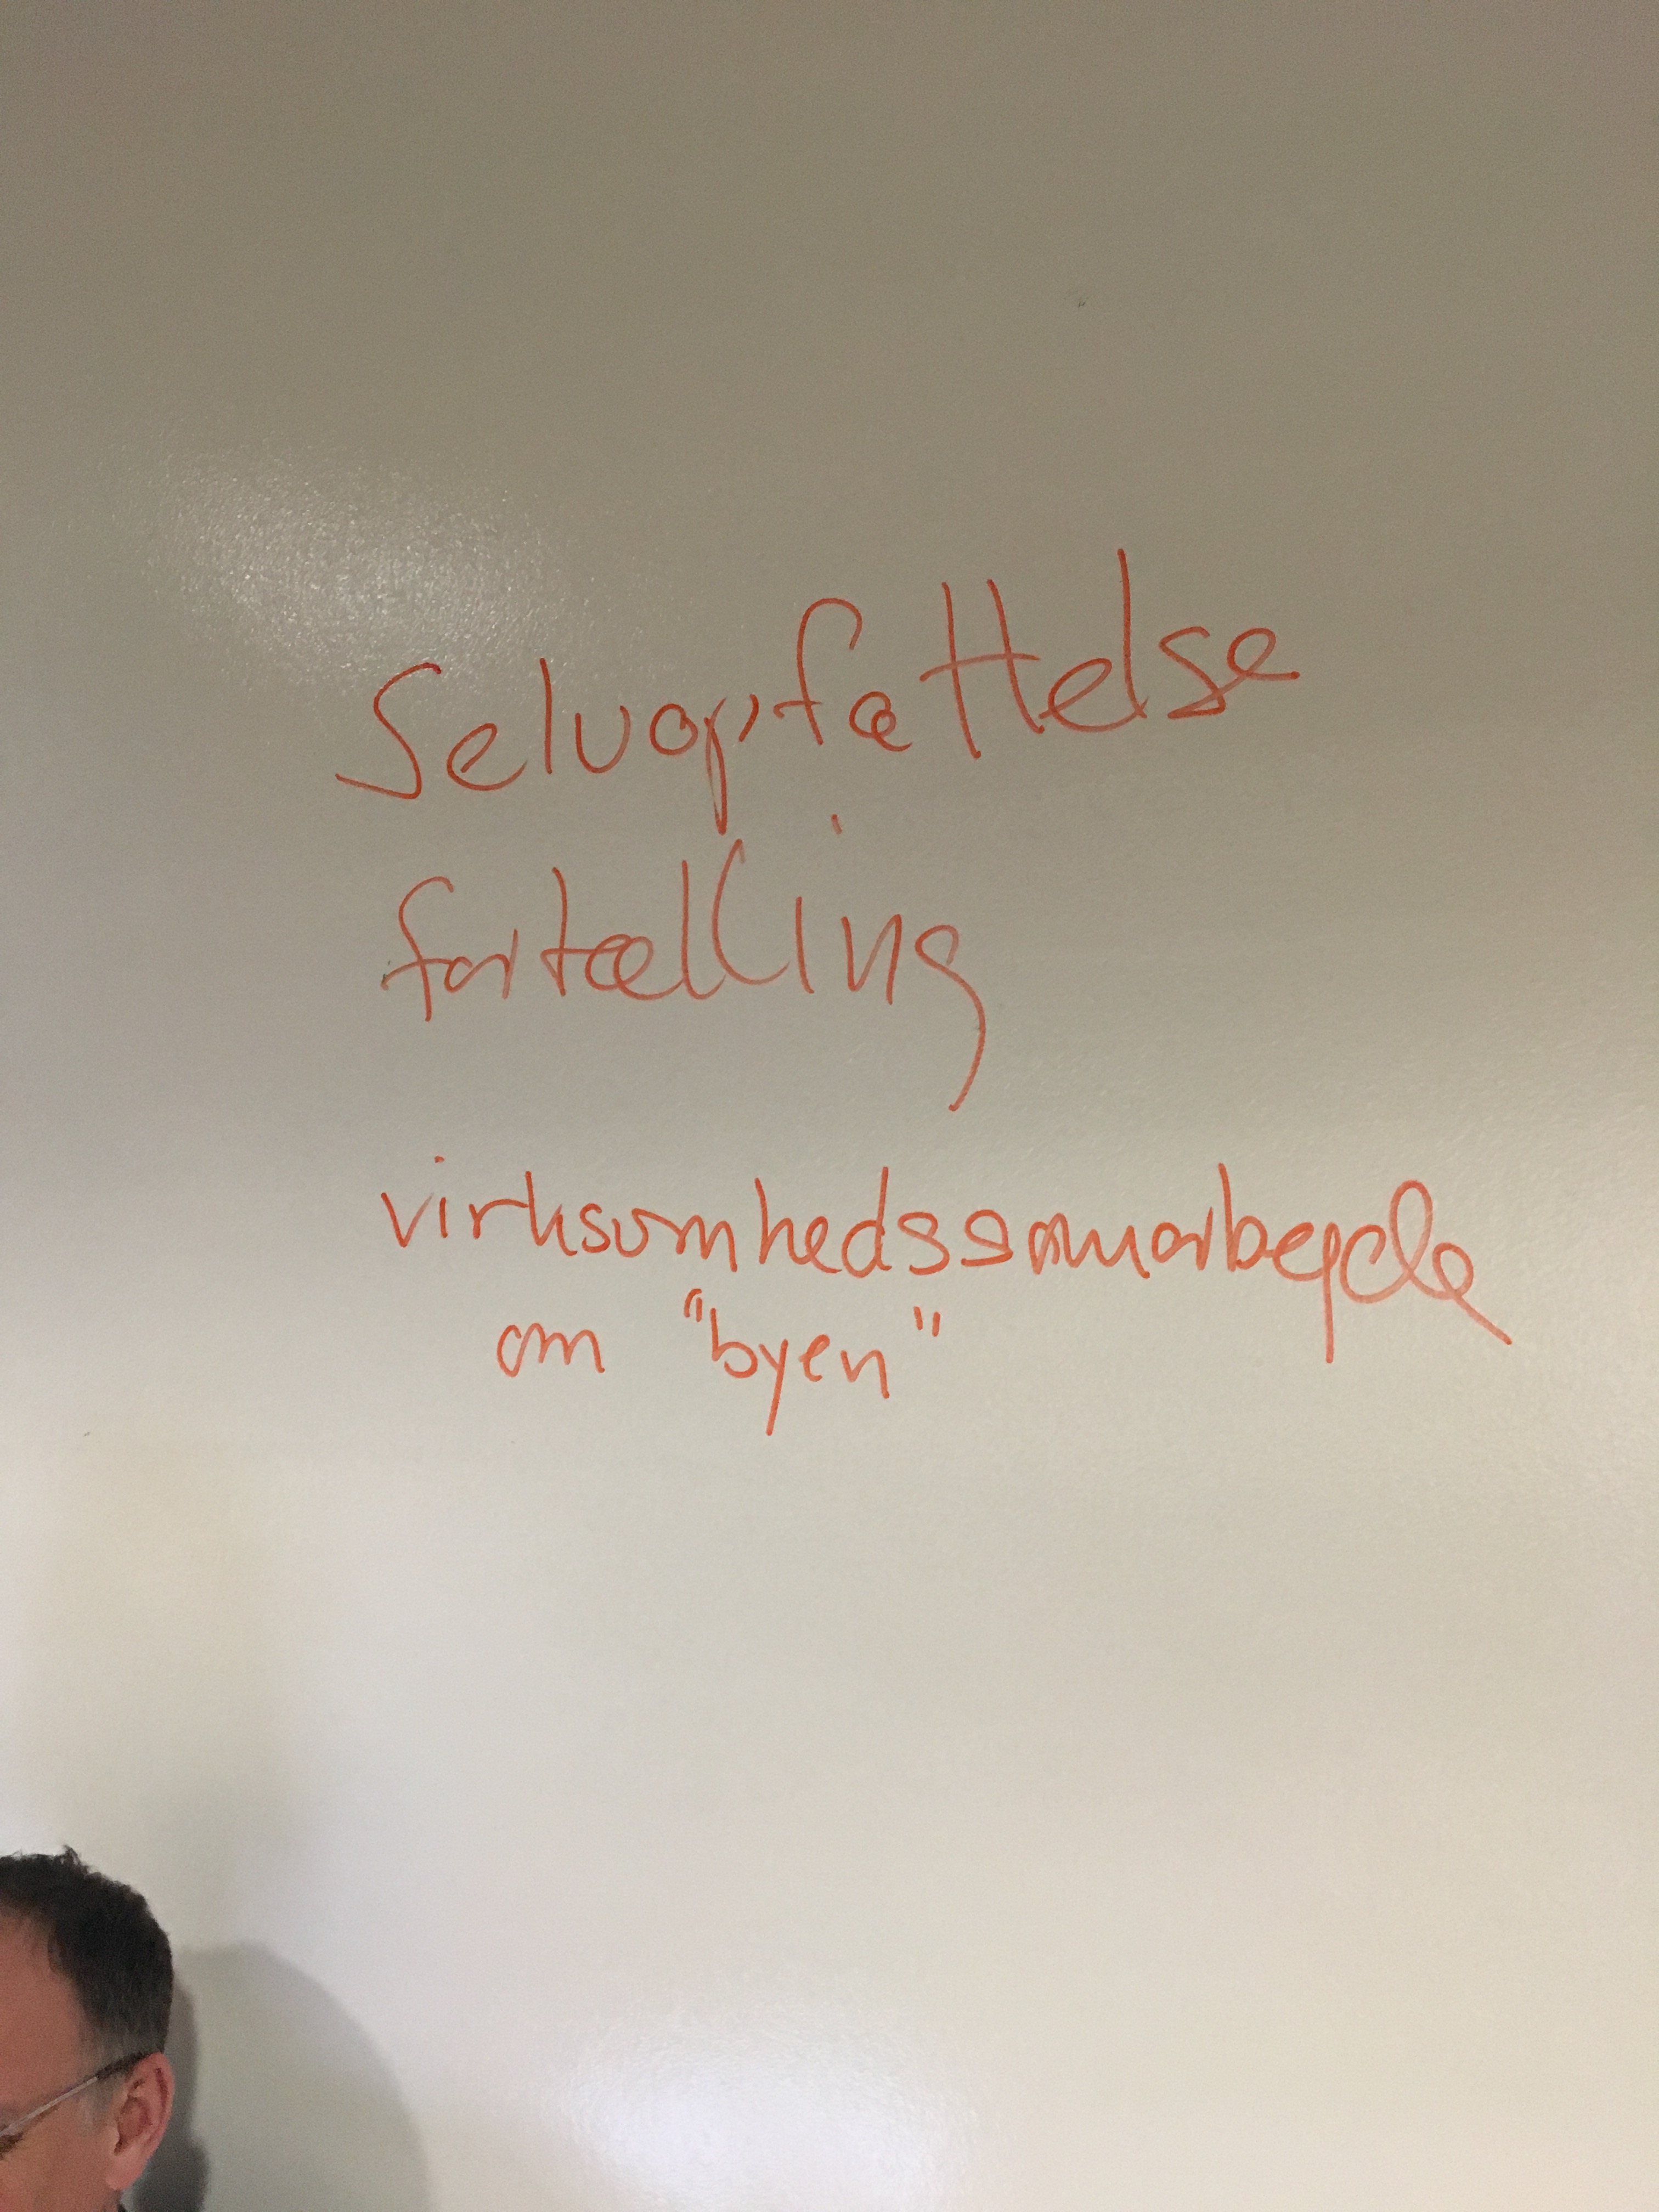 Selvopfattelse
fortælling
virksomhedssamarbejde
om "byen"